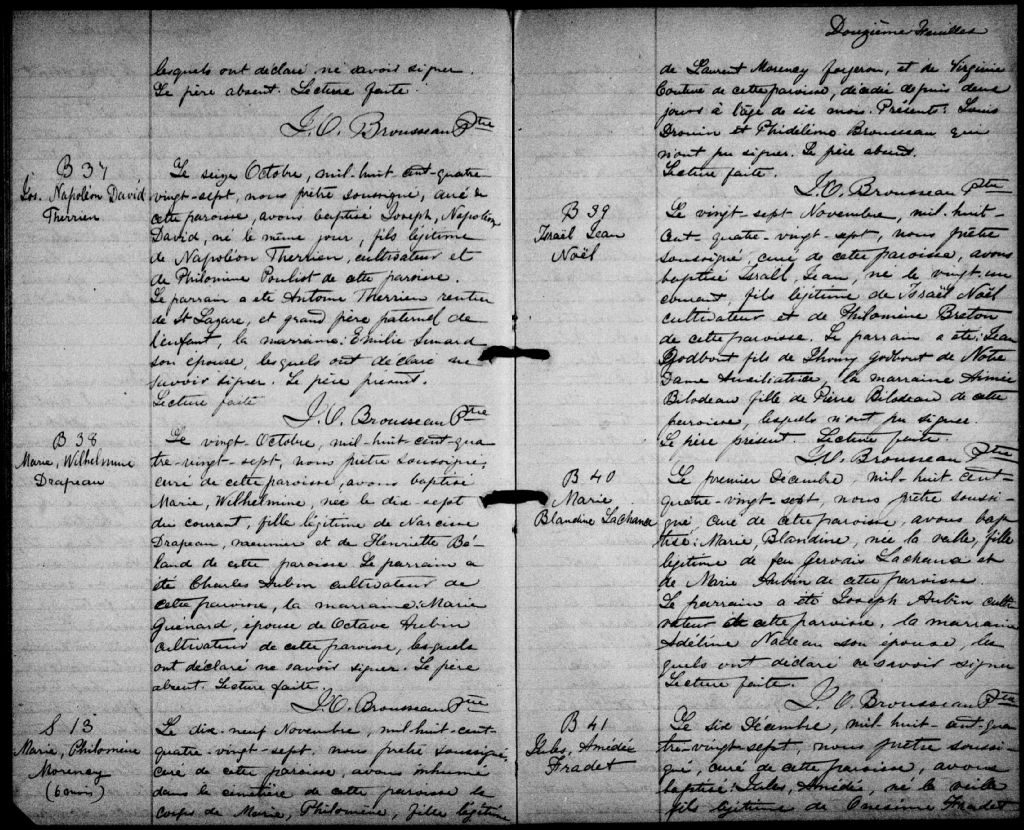 lesquels ont déclaré ne savoir signer.
Le père absent. Lecture faite.
J. O. Brousseau Ptre
B 37
Jos. Napoléon David
Therrien
Le seize Octobre, mil-huit cent-quatre-
vingt-sept, nous prêtre soussigné, curé de
cette paroisse, avons baptisé Joseph, Napoléon
David, né le même jour, fils légitime
de Napoléon Therrien, cultivateur et
de Philomine Pouliot de cette paroisse.
Le parrain a été Antoine Therrien rentier
de St Lazare, et grand père paternel de
l'enfant, la marraine: Emilie Simard
son épouse, lesquels ont déclaré ne
savoir signer. Le père présent.
Lecture faite
J. O. Brousseau Ptre
B 38
Marie, Wilhelmine
Drapeau
Le vingt-Octobre, mil-huit cent-qua
tre-vingt-sept, nous prêtre soussigné,
curé de cette paroisse, avons baptisé
Marie, Wilhelmine, née le dix sept
du courant, fille légitime de Narcisse
Drapeau, meunier et de Henriette Bé-
land de cette paroisse. Le parrain a
été Charles Aubin cultivateur de
cette paroisse, la marraine: Marie
Guénard, épouse de Octave Aubin
cultivateur de cette paroisse, lesquels
ont déclaré ne savoir signer. Le père
absent. Lecture faite.
J. O. Brousseau Ptre
S 13
Marie, Philomine
Morency
(6 mois)
Le dix-neuf Novembre, mil-huit-cent-
quatre-vingt-sept, nous prêtre soussigné,
curé de cette paroisse, avons inhumé
dans le cimetière de cette paroisse le
corps de Marie, Philomine, fille légitime
Douzième Feuillet
de Laurent Morency forgeron, et de Virginie
Couture de cette paroisse, décédée depuis deux
jours à l'âge de six mois. Présents: Louis
Drouin et Phidelime Brousseau qui
n'ont pu signer. Le père absent.
Lecture faite.
J. O. Brousseau Ptre
B 39
Israël Jean
Noël
Le vingt-sept Novembre, mil-huit-
cent-quatre-vingt-sept, nous prêtre
soussigné, curé de cette paroisse, avons
baptisé Israël, Jean, né le vingt-un
courant, fils légitime de Israël Noël
cultivateur et de Philomine Breton
de cette paroisse. Le parrain a été: Jean
Godbout fils de Godbout de Notre
Dame Auxiliatrice, la marraine Aimée
Bilodeau fille de Pierre Bilodeau de cette
paroisse, lesquels n'ont pu signer.
Le père présent. Lecture faite.
J. O. Brousseau Ptre
B 40
Marie
Blandine Lachance
Le premier Décembre, mil-huit-cent-
quatre-vingt-sept, nous prêtre soussi-
gné, curé de cette paroisse, avons bap
tisé: Marie, Blandine, née la veille, fille
légitime de feu Gervais Lachance et
de Marie Aubin de cette paroisse.
Le parrain a été Joseph Aubin culti
vateur de cette paroisse, la marraine
Adéline Nadeau son épouse, les
quels ont déclaré ne savoir signer
Lecture faite.
J. O. Brousseau Ptre
B 41
Jules, Amédée
Fradet
Le six Décembre, mil-huit-cent-qua
tre-vingt-sept, nous prêtre soussi-
gné, curé de cette paroisse, avons
baptisé: Jules, Amédée, né la veille
fils légitime de Onésime Fradet